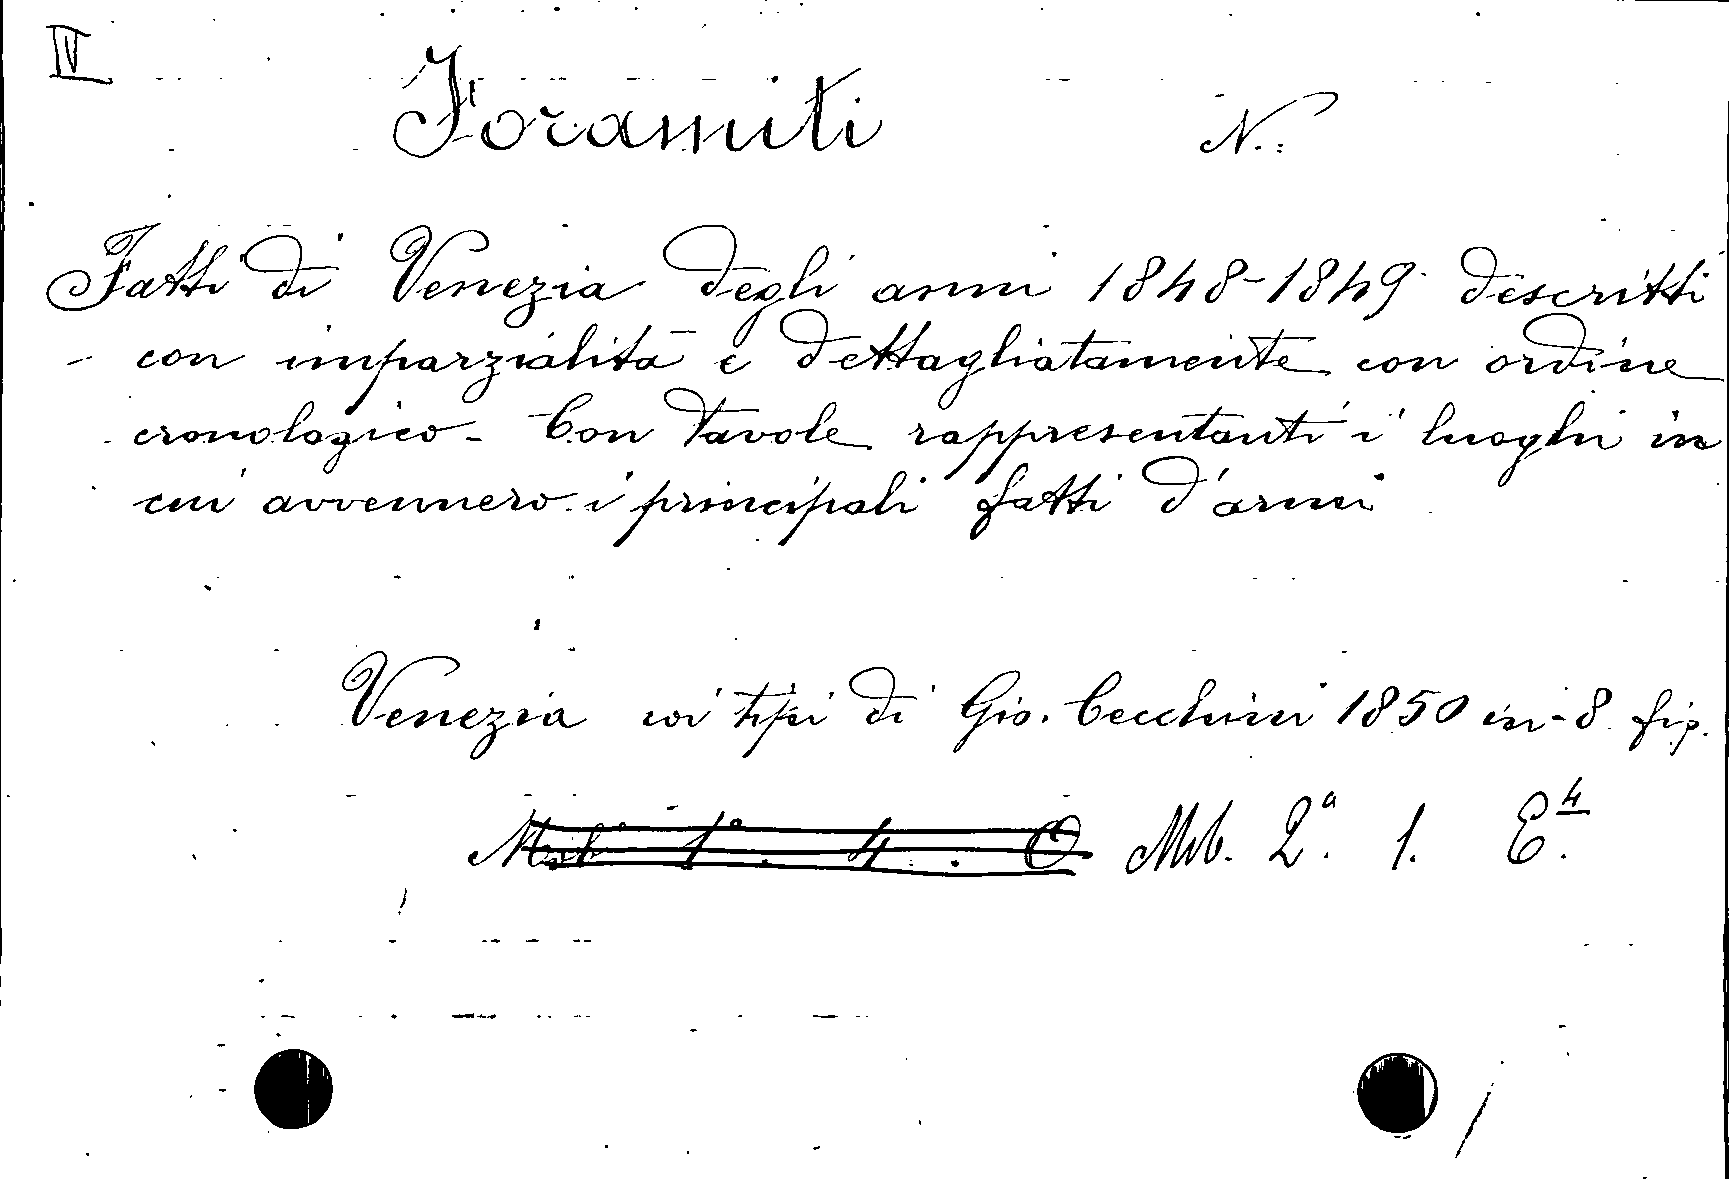 IV
Foramiti N.:
Fatti di Venezia degli anni 1848-1849 descritti
con imparzialità e dettagliatamente con ordine
cronologico - Con tavole rappresentanti i luoghi in
cui avvennero i principali fatti d'armi
Venezia coi tipi di Gio. Cecchini 1850 in-8 fig.
1° . 4 . O Mib. 2ª. 1. E.4